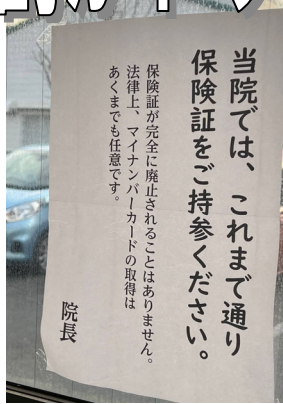 当院では、これまで通り
保険証をご持参ください。
保険証が完全に廃止されることはありません。
法律上、マイナンバーカードの取得は
あくまでも任意です。
院長